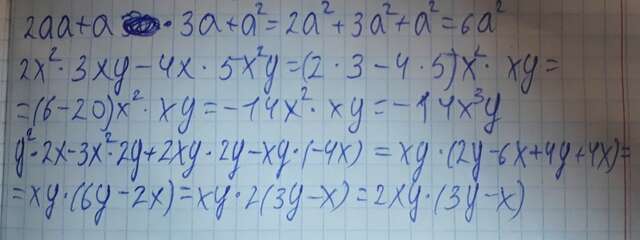 2aa+a · 3a+a² = 2a²+3a²+a² = 6a²
2x² · 3xy - 4x · 5x²y = (2 · 3 - 4 · 5)x² · xy =
= (6-20)x² · xy = -14x² · xy = -14x³y
y² · 2x - 3x² · 2y + 2xy · 2y - xy · (-4x) = xy · (2y - 6x + 4y + 4x) =
= xy · (6y - 2x) = xy · 2(3y - x) = 2xy · (3y - x)